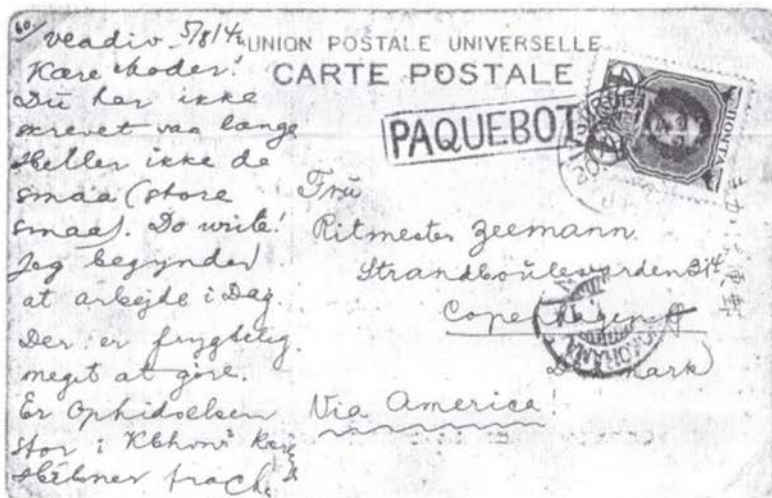 60/ Vladiv. 5/8/14
Kære Moder!
Du har ikke
skrevet saa længe
Heller ikke de
smaa (store
smaa). Do write!
Jeg begynder
at arbejde i Dag
Der er frygtelig
meget at gøre.
Er Ophidselsen
stor i Kbhvn?
Hilsner
UNION POSTALE UNIVERSELLE
CARTE POSTALE
PAQUEBOT
ПОЧТА
Fru
Ritmester Zeemann
Strandboulevarden
Copenhagen Ø
Denmark
Via America!